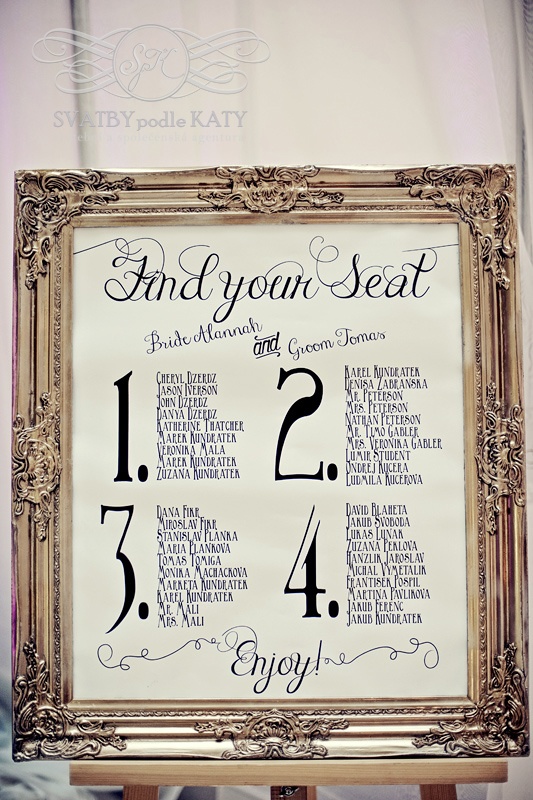 SK
SVATBY podle KATY
Find your Seat
Bride Alannah and Groom Tomas
1.
Cheryl Dzerdz
Jason Iverson
John Dzerdz
Danya Dzerdz
Katherine Thatcher
Marek Kundratek
Veronika Mala
Marek Kundratek
Zuzana Kundratek
2.
Karel Kundratek
Denisa Zabranska
Mr. Peterson
Mrs. Peterson
Nathan Peterson
Mr. Timo Gabler
Mrs. Veronika Gabler
Lumir Student
Ondřej Kucera
Ludmila Kucerova
3.
Dana Fikr
Miroslav Fikr
Stanislav Planka
Maria Plankova
Tomas Tomiga
Monika Machackova
Marketa Kundratek
Karel Kundratek
Mr. Mali
Mrs. Mali
4.
David Blaheta
Jakub Svoboda
Lukas Lunak
Zuzana Peklova
Hanzlik Jaroslav
Michal Vymetalik
Frantisek Pospil
Martina Pavlikova
Jakub Ferenc
Jakub Kundratek
Enjoy!